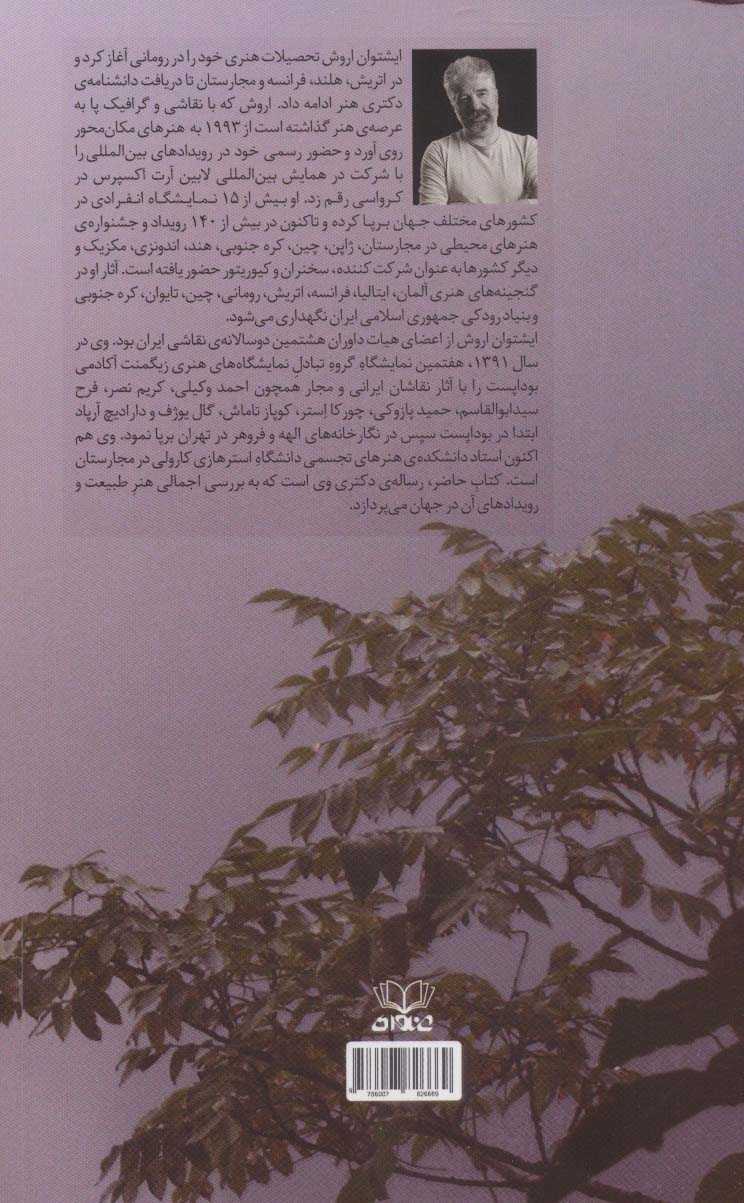 ایشتوان اروش تحصیلات هنری خود را در رومانی آغاز کرد و
در اتریش، هلند، فرانسه و مجارستان تا دریافت دانشنامه‌ی
دکتری هنر ادامه داد. اروش که با نقاشی و گرافیک پا به
عرصه‌ی هنر گذاشته است از ۱۹۹۳ به هنرهای مکان‌محور
روی آورد و حضور رسمی خود در رویدادهای بین‌المللی را
با شرکت در همایش بین‌المللی لابین آرت اکسپرس در
کرواسی رقم زد. او بیش از ۱۵ نمایشگاه انفرادی در
کشورهای مختلف جهان برپا کرده و تاکنون در بیش از ۱۴۰ رویداد و جشنواره‌ی
هنرهای محیطی در مجارستان، ژاپن، چین، کره جنوبی، هند، اندونزی، مکزیک و
دیگر کشورها به عنوان شرکت کننده، سخنران و کیوریتور حضور یافته است. آثار او در
گنجینه‌های هنری آلمان، ایتالیا، فرانسه، اتریش، رومانی، چین، تایوان، کره جنوبی
و بنیاد رودکی جمهوری اسلامی ایران نگهداری می‌شود.
ایشتوان اروش از اعضای هیات داوران هشتمین دوسالانه‌ی نقاشی ایران بود. وی در
سال ۱۳۹۱، هفتمین نمایشگاهِ گروهِ تبادلِ نمایشگاه‌های هنری زیگمنت آکادمی
بوداپست را با آثار نقاشان ایرانی و مجار همچون احمد وکیلی، کریم نصر، فرح
سیدابوالقاسم، حمید پازوکی، چورکا اِستر، کوپاز تاماش، گال یوژف و دارادیچ آرپاد
ابتدا در بوداپست سپس در نگارخانه‌های الهه و فروهر در تهران برپا نمود. وی هم
اکنون استاد دانشکده‌ی هنرهای تجسمی دانشگاهِ استرهازی کارولی در مجارستان
است. کتابِ حاضر، رساله‌ی دکتری وی است که به بررسی اجمالی هنرِ طبیعت و
رویدادهای آن در جهان می‌پردازد.
9 786007 826669